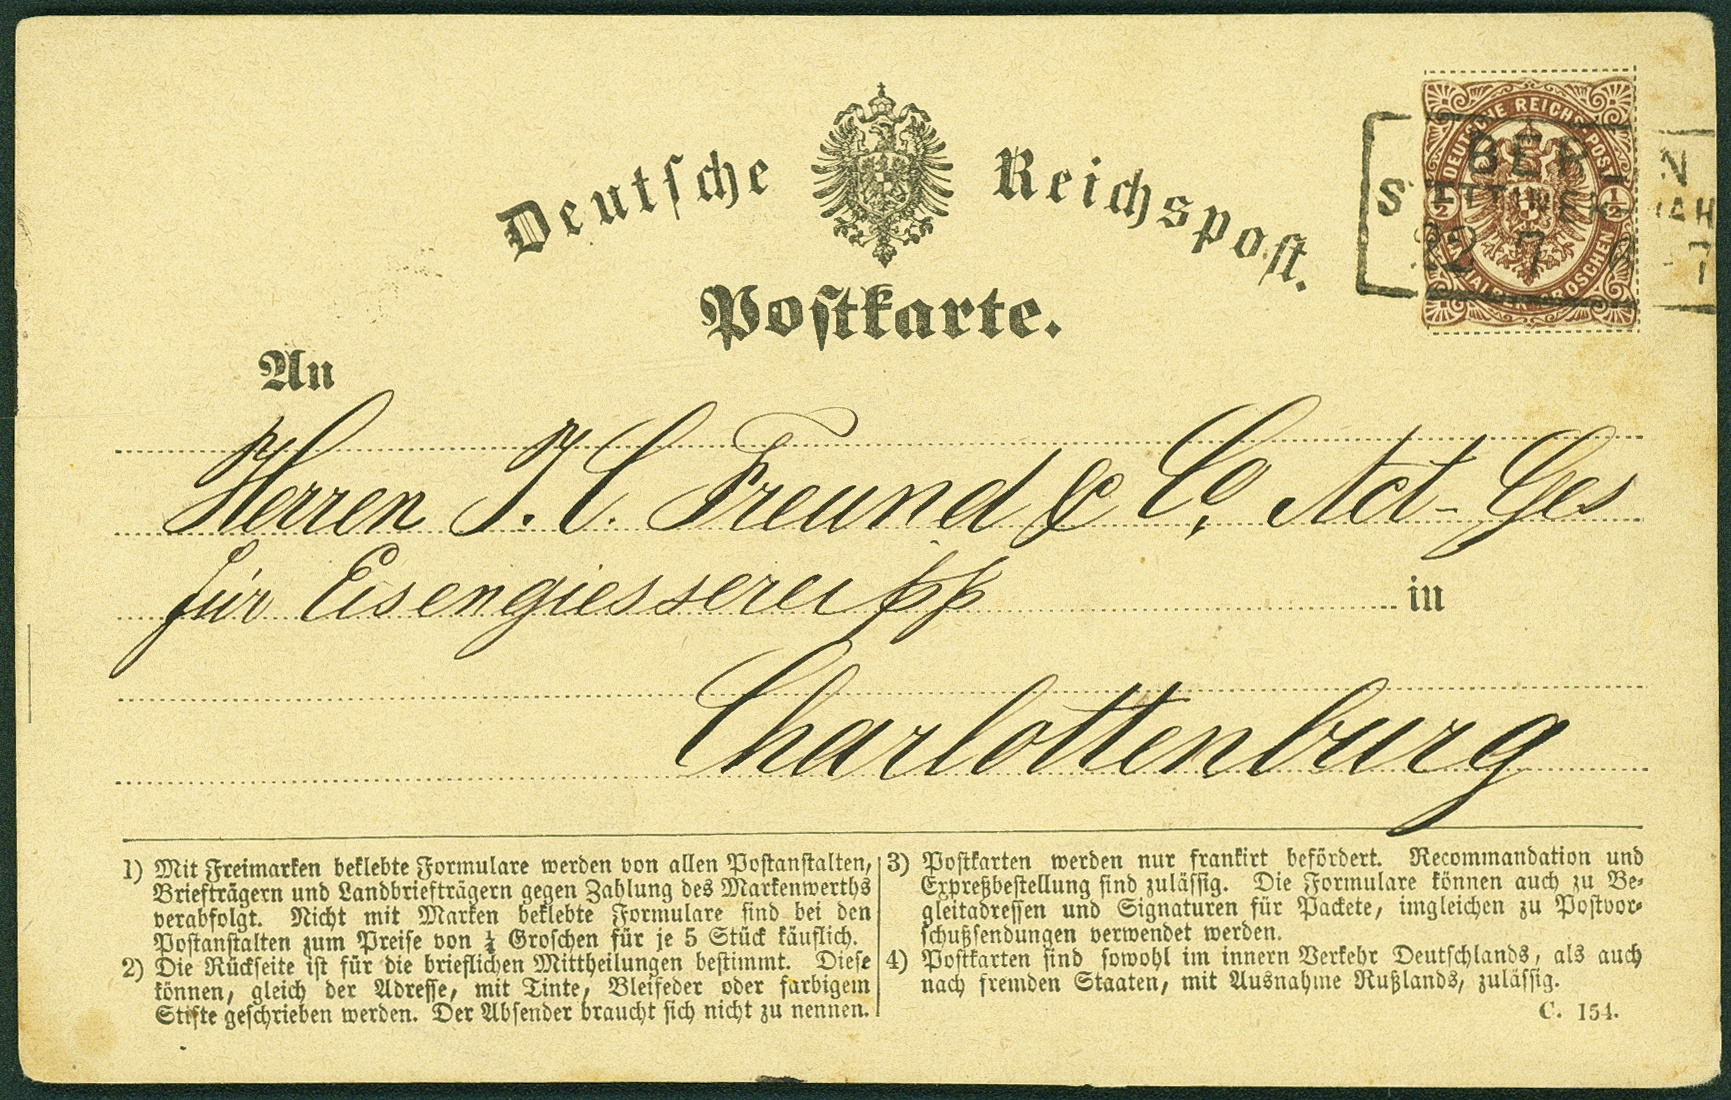 Deutsche Reichspost.
Postkarte.
DEUTSCHE REICHS-POST
½ ½
BER N
12 7
An
Herren J. C. Freund & Co, Act-Ges
für Eisengiesserei pp
in
Charlottenburg
1) Mit Freimarken beklebte Formulare werden von allen Postanstalten,
Briefträgern und Landbriefträgern gegen Zahlung des Markenwerths
verabfolgt. Nicht mit Marken beklebte Formulare sind bei den
Postanstalten zum Preise von ¼ Groschen für je 5 Stück käuflich.
2) Die Rückseite ist für die brieflichen Mittheilungen bestimmt. Diese
können, gleich der Adresse, mit Tinte, Bleifeder oder farbigem
Stifte geschrieben werden. Der Absender braucht sich nicht zu nennen.
3) Postkarten werden nur frankirt befördert. Recommandation und
Expreßbestellung sind zulässig. Die Formulare können auch zu Be-
gleitadressen und Signaturen für Packete, imgleichen zu Postvor-
schußsendungen verwendet werden.
4) Postkarten sind sowohl im innern Verkehr Deutschlands, als auch
nach fremden Staaten, mit Ausnahme Rußlands, zulässig.
C. 154.